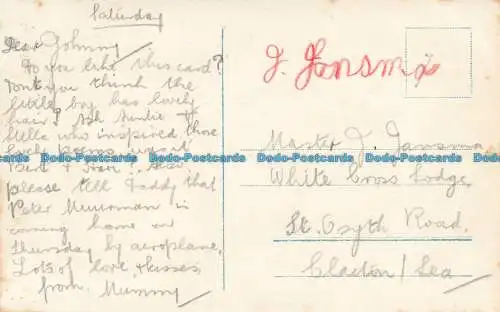 Saturday
Dear Johnny
Do you like this card?
Don't you think the
little boy has lovely
hair? Ask Auntie &
Stella who inspired those
lovely poems
please tell Daddy that
Peter Muurman is
coming home on
Thursday by aeroplane.
Lots of love & kisses
from Mummy
J. Jansma
Master J. Jansma
White Cross Lodge,
St. Osyth Road,
Clacton / Sea
Dodo-Postcards Dodo-Postcards Dodo-Postcards Dodo-Postcards Dodo-Postcards Dodo-Postcards